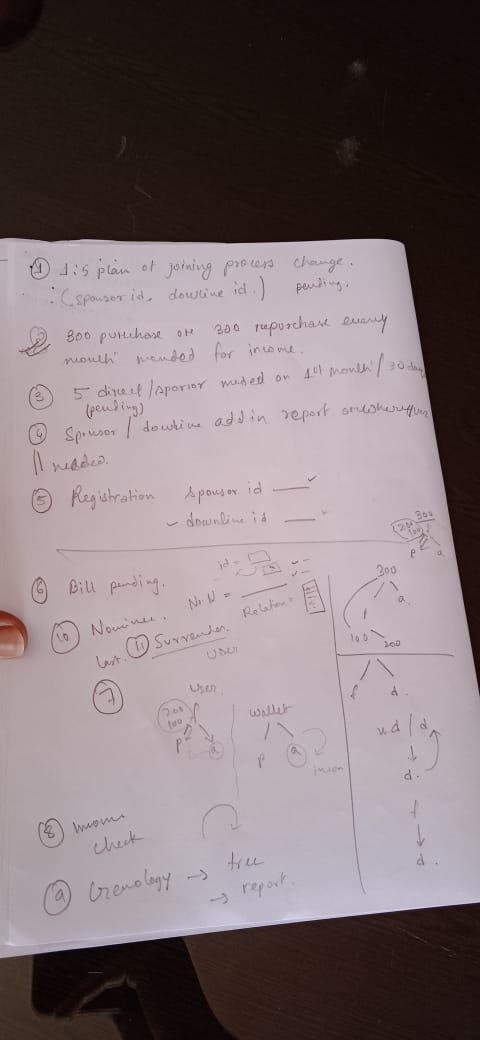 ① 1:5 plan of joining process change.
(sponsor id, dowline id.) pending.
② 300 purchase or 300 repurchase every
month needed for income.
③ 5 direct / sponsor needed on 1st month / 30 days
(pending)
④ Sponsor / dowline add in report or where
needed.
⑤ Registration sponsor id
downline id
300
200
100
p a
⑥ Bill pending.
id =
⑩ Nominee. No. N =
Relation =
Last. ⑪ Surrender.
user
300
f a
100 200
⑦ user
200 f
100
p a
wallet
p a
f d.
u.d / d
d.
f
d.
⑧ check
⑨ Genology → tree
→ report.